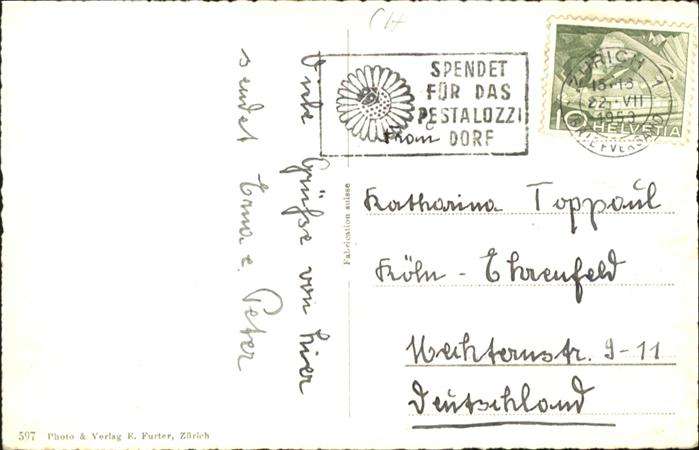 CH
SPENDET
FÜR DAS
PESTALOZZI
DORF
ZÜRICH 1
22. VII
1953
BRIEFVERSAND
10
HELVETIA
Viele Grüße von hier
sendet Erna u. Peter
Fabrication suisse
Frau
Katharina Toppaul
Köln - Ehrenfeld
Mechternstr. 9-11
Deutschland
597 Photo & Verlag E. Furter, Zürich